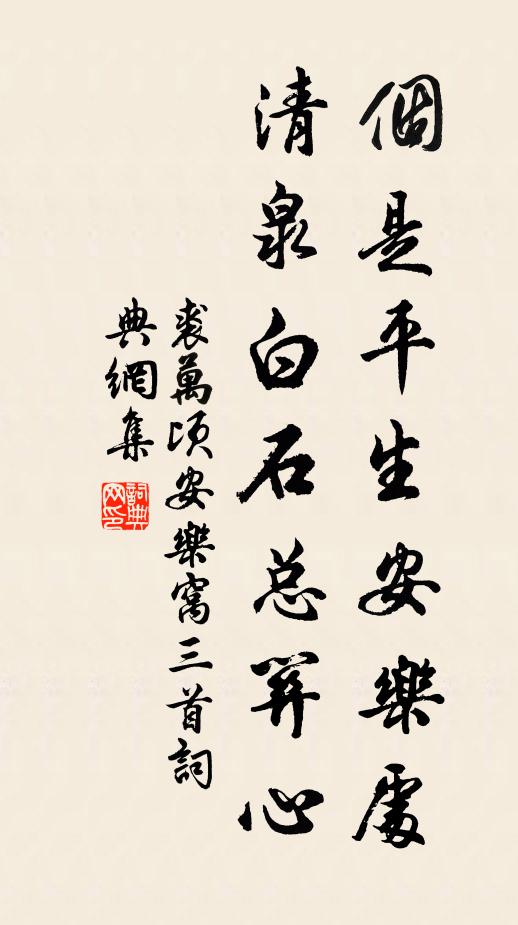 個是平生安樂處
清泉白石总關心
裘萬頃安樂窩三首詞
典網集
詞典
网印